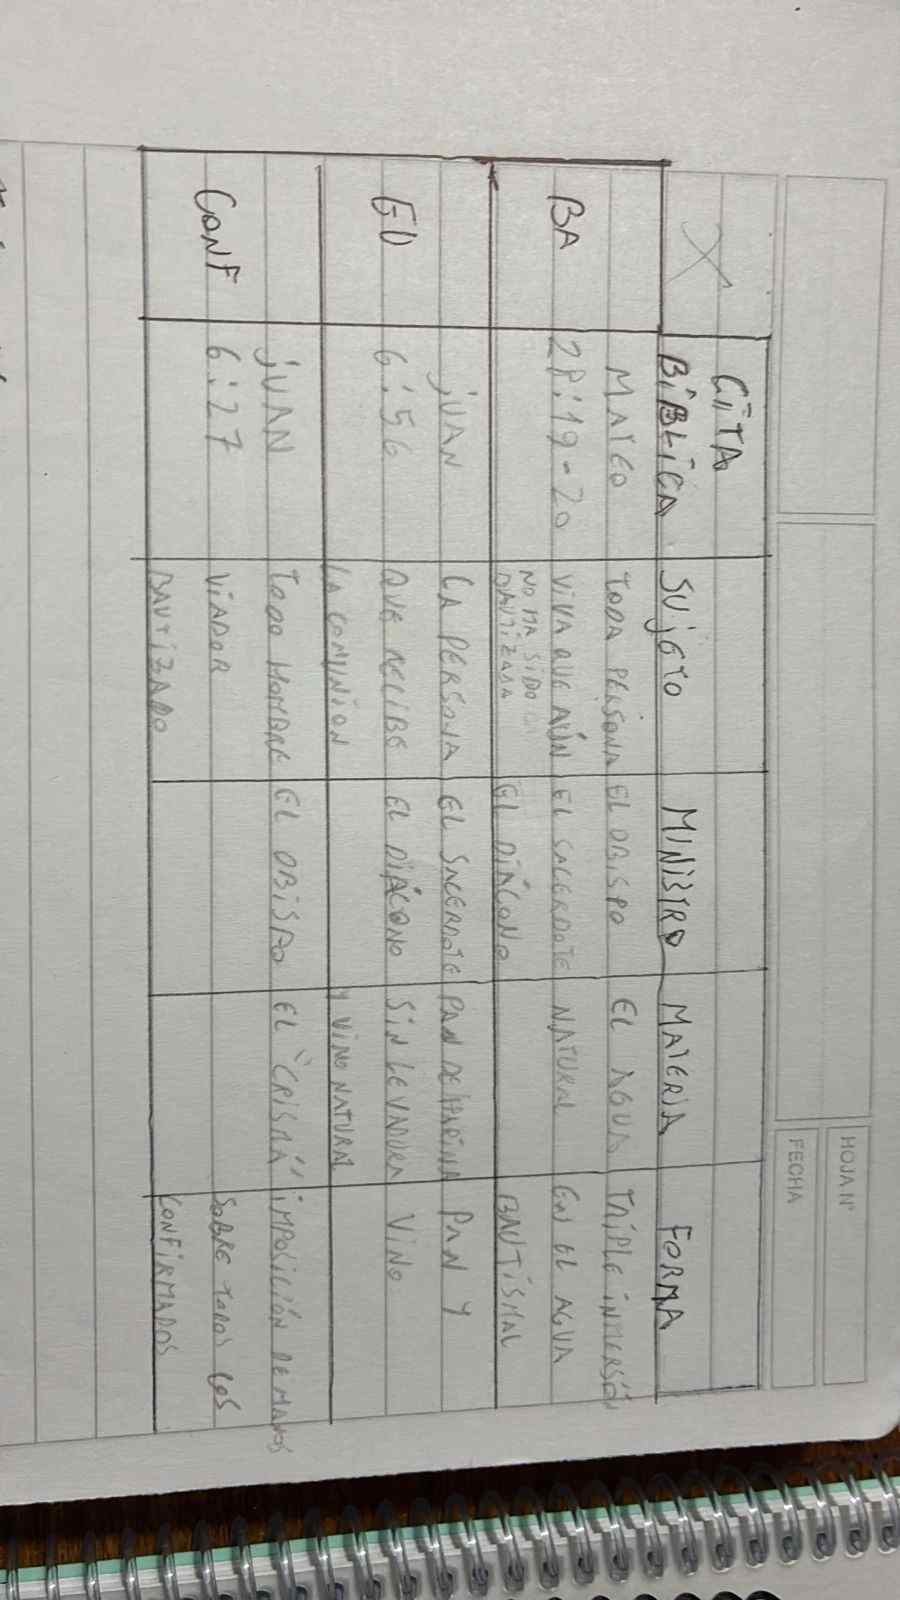 HOJA Nº
FECHA
X
CITA
BIBLICA
SUJETO
MINISTRO
MATERIA
FORMA
BA
MATEO
28:19-20
TODA PERSONA
VIVA QUE AÚN
NO HA SIDO
BAUTIZADA
EL OBISPO
EL SACERDOTE
EL DIÁCONO
EL AGUA
NATURAL
TRIPLE INMERSIÓN
EN EL AGUA
BAUTISMAL
EU
JUAN
6:56
LA PERSONA
QUE RECIBE
LA COMUNIÓN
EL SACERDOTE
EL DIÁCONO
PAN DE HARINA
SIN LEVADURA
Y VINO NATURAL
PAN Y
VINO
CONF
JUAN
6:27
TODO HOMBRE
VIADOR
BAUTIZADO
EL OBISPO
EL "CRISMA"
IMPOSICIÓN DE MANOS
SOBRE TODOS LOS
CONFIRMADOS